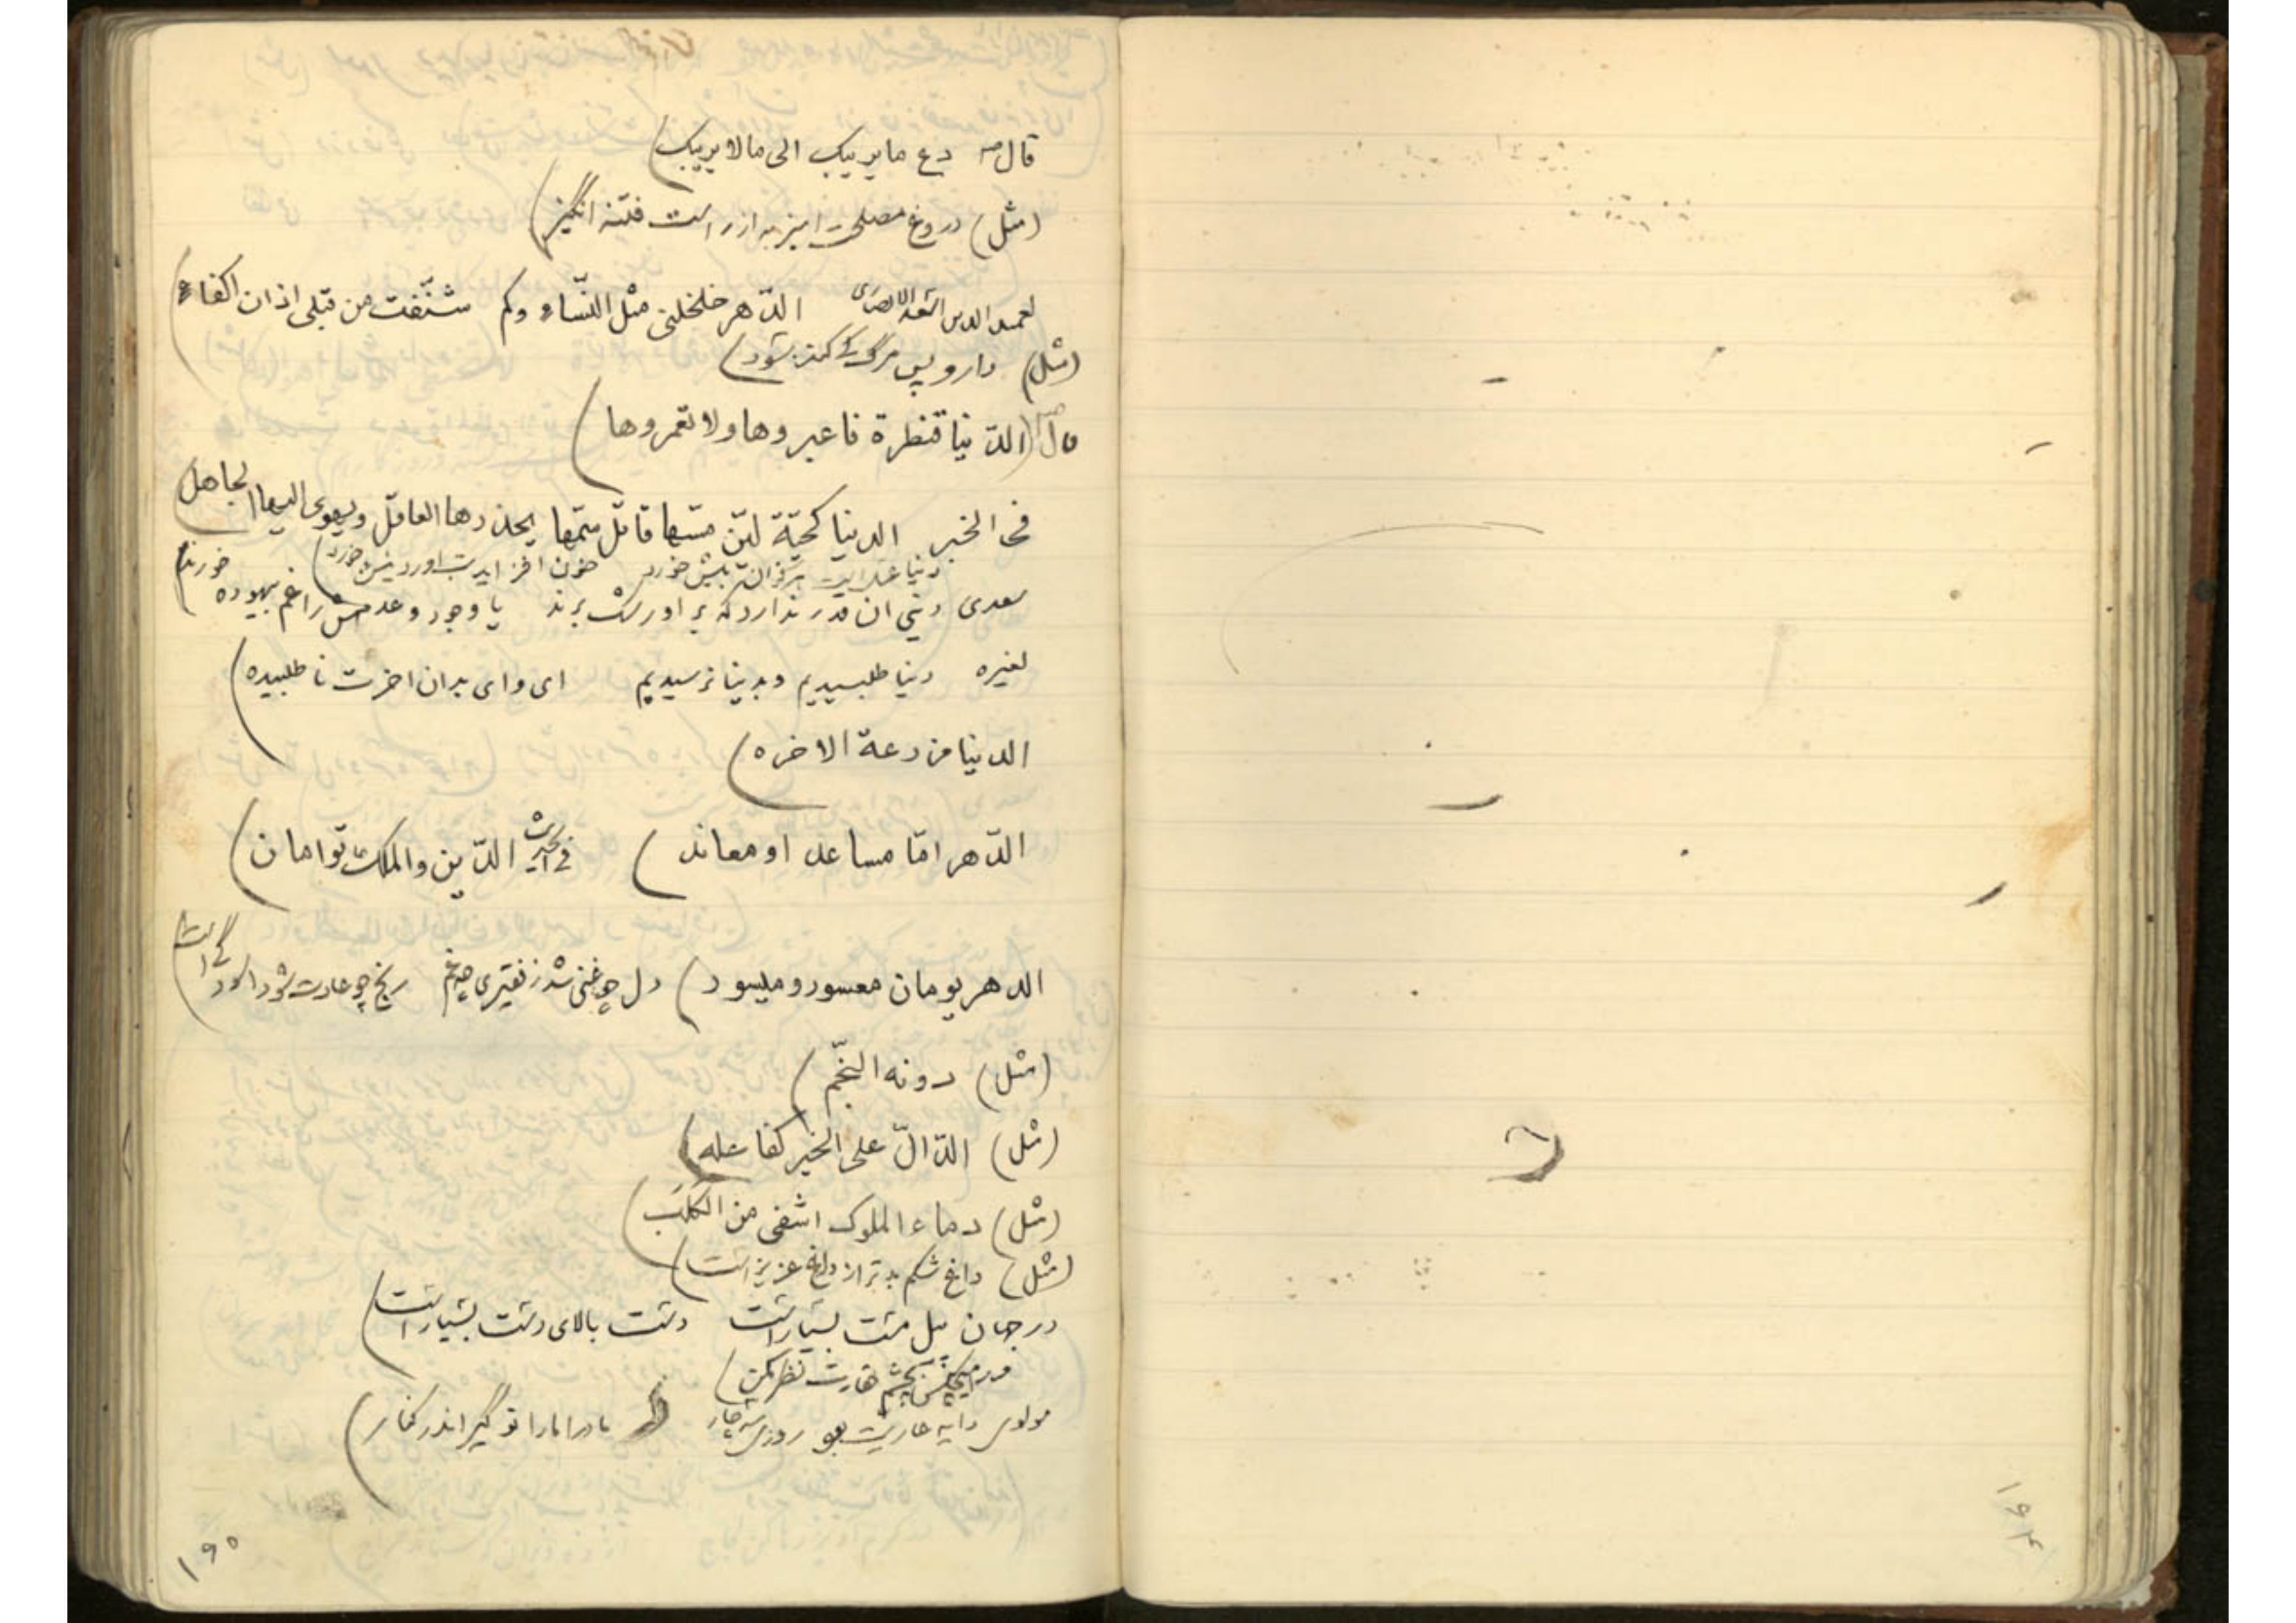 قال ص دع ما یریبک الی ما لا یریبک)
(مثل) دروغ مصلحت امیز به از راست فتنه انگیز)
لعمید الدین اسعد الدهر خلخلنی مثل النّساء وکم شنّفت من قبلی اذان اکفاء)
(مثل) دارو پس مرگ کی بشود)
قال ص (الدّنیا قنطرة فاعبروها ولا تعمروها)
فی الخبر الدنیا کحیّة لیّن مسّها قاتل سمّها یحذرها العاقل ویهوی الیها الجاهل)
خون افزاید
سعدی دنیی ان قدر ندارد که بر او رشک برند یا وجود و عدمش را غم بیهوده خورند)
لغیره دنیا طلبیدیم و بدنیا نرسیدیم ای وای بدان اخرت نا طلبیده)
الدنیا مزرعة الاخره)
الدّهر امّا مساعد او معاند) فی الحدیث الدّین والملک توامان)
الدهر یومان معسور و میسور) دل چو غنی شد ز فقیری چه غم رنج چو عادت شود اسودگی است)
(مثل) دونه النّجم)
(مثل) الدّالّ علی الخیر کفاعله)
(مثل) دماء الملوک اشفی من الکلب)
(مثل) داغ شکم بدتر از داغ عزیز است)
در جهان پیل مست بسیار است دست بالای دست بسیار است)
در هیچکس بچشم حقارت نظر مکن)
مولوی دایه عاریت بود روزی سه چار مادرا ما را تو گیر اندر کنار)
۱۹۵
۱۹۴